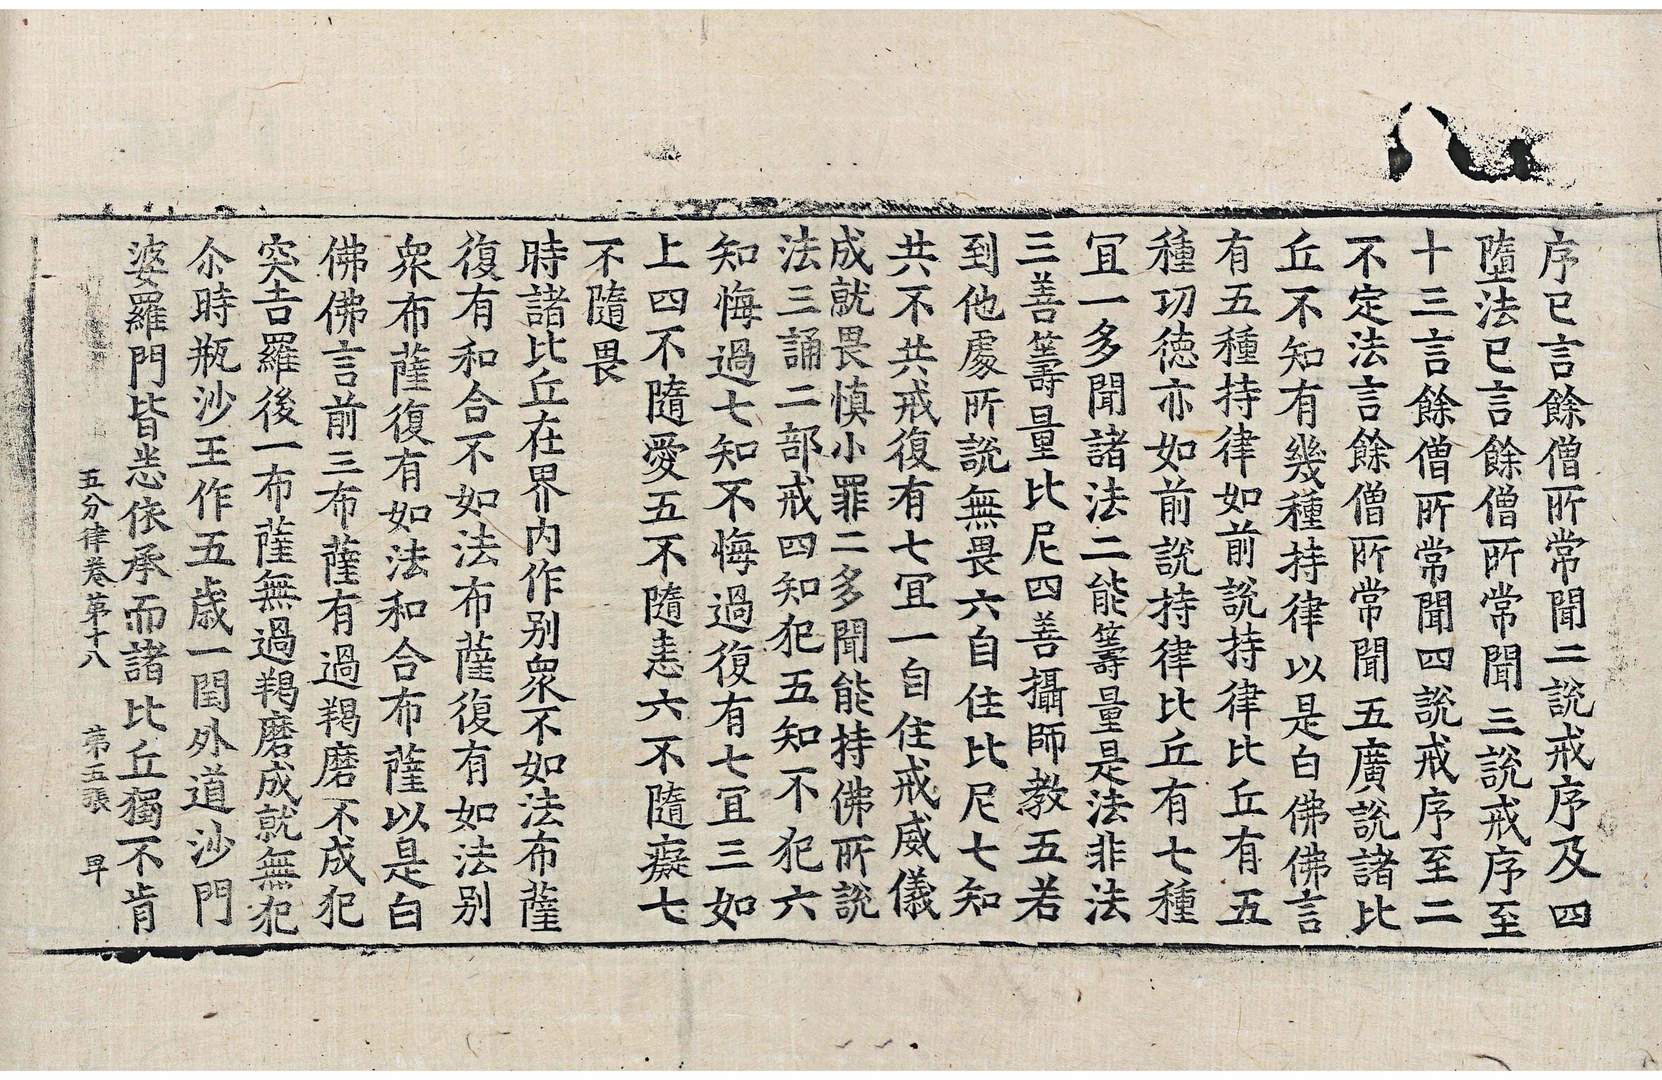 序已言餘僧所常聞二說戒序及四
墮法已言餘僧所常聞三說戒序至
十三言餘僧所常聞四說戒序至二
不定法言餘僧所常聞五廣說諸比
丘不知有幾種持律以是白佛佛言
有五種持律如前說持律比丘有五
種功徳亦如前說持律比丘有七種
冝一多聞諸法二能籌量是法非法
三善籌量比尼四善攝師教五若
到他處所說無畏六自住比尼七知
共不共戒復有七冝一自住戒威儀
成就畏慎小罪二多聞能持佛所說
法三誦二部戒四知犯五知不犯六
知悔過七知不悔過復有七冝三如
上四不隨愛五不隨恚六不隨癡七
不隨畏
時諸比丘在界内作别衆不如法布薩
復有和合不如法布薩復有如法别
衆布薩復有如法和合布薩以是白
佛佛言前三布薩有過羯磨不成犯
突吉羅後一布薩無過羯磨成就無犯
尒時瓶沙王作五歳一閏外道沙門
婆羅門皆悉依承而諸比丘獨不肯
五分律卷第十八 第五張